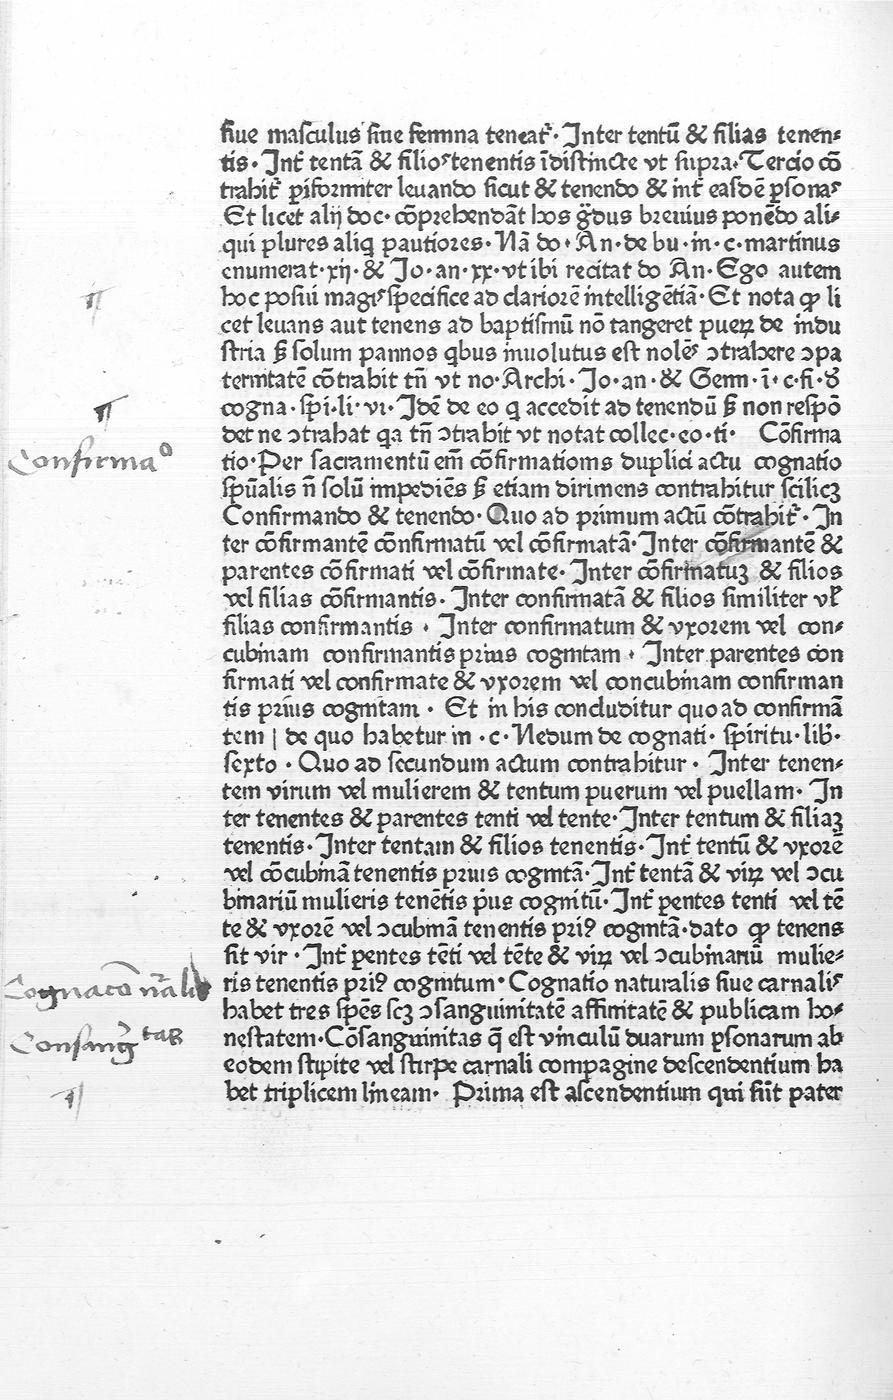 ſiue maſculus ſiue femina teneat᷑· Inter tentū & filias tenen⸗
tis· Int᷑ tentā & filioſ tenentis īdiſtincte vt ſupra· Tercio cō
trahit᷑ ꝑiformiter leuando ſicut & tenendo & int᷑ eaſdē ꝑſonaſ
Et licet alij doc· cōprehendāt hos g̈dus breuius ponēdo ali⸗
qui plures aliq̄ pautiores· Nā do· An· de bu· in· c· martinus
enumerat· xij· & Jo· an· xx· vt ibi recitat do An· Ego autem
hoc poſui magiſ ſpecifice ad clariorē intelligētiā· Et nota ꝙ li
cet leuans aut tenens ad baptiſmū nō tangeret pueꝝ de indu
ſtria ẞ ſolum pannos qbus inuolutus eſt nolēſ ↄtrahere ↄpa
ternitatē cōtrahit tn̄ vt no· Archi· Jo· an· & Gemi· ī· c· fi· ð
cogna· ſpi· li· vi· Idē de eo q accedit ad tenendū ẞ non reſpō
det ne ↄtrahat qa tn̄ ↄtrahit vt notat collec· eo· ti· Cōfirma
tio· Per ſacramentū em̄ cōfirmationis duplici actu cognatio
ſpūalis n̄ ſolū impediēs ẞ etiam dirimens contrahitur ſcilicꝫ
Confirmando & tenendo· Quo ad primum actū cōtrahit᷑· In
ter cōfirmantē cōnfirmatū vel cōfirmatā· Inter cōfirmantē &
parentes cōfirmati vel cōfirmate· Inter cōfirmatuꝫ & filios
vel filias cōfirmantis· Inter confirmatā & filios ſimiliter vł
filias confirmantis · Inter confirmatum & vxorem vel con⸗
cubinam confirmantis prius cognitam · Inter parentes con
firmati vel confirmate & vxorem vel concubinam confirman
tis prius cognitam · Et in his concluditur quo ad confirmā
tem | de quo habetur in · c· Nedum de cognati· ſpiritu· lib·
ſexto · Quo ad ſecundum actum contrahitur · Inter tenen⸗
tem virum vel mulierem & tentum puerum vel puellam· In
ter tenentes & parentes tenti vel tente· Inter tentum & filiaꝫ
tenentis· Inter tentam & filios tenentis· Int᷑ tentū & vxorē
vel cōcubinā tenentis prius cognitā· Int᷑ tentā & viꝝ vel ↄcu
binariū mulieris tenētis p̄us cognitū· Int᷑ ꝑentes tenti vel tē
te & vxorē vel ↄcubinā tenentis priꝰ cognitā· dato ꝙ tenens
ſit vir · Int᷑ ꝑentes tēti vel tēte & viꝝ vel ↄcubinariū mulie⸗
ris tenentis priꝰ cognitum· Cognatio naturalis ſiue carnaliſ
habet tres ſpēs ſcꝫ ↄſanguinitatē affinitatē & publicam ho⸗
neſtatem· Cōſanguinitas q̄ eſt vinculū duarum ꝑſonarum ab
eodem ſtipite vel ſtirpe carnali compagine deſcendentium ha
bet triplicem lineam· Prima eſt aſcendentium qui ſūt pater
¶
¶
Confirmaᵒ
Cognacō nālis
Conſang̃ᵗᵃˢ
¶